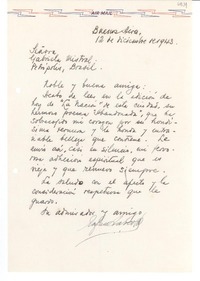 AIR MAIL
Buenos Aires,
12 de diciembre de 1943.
Señora
Gabriela Mistral.
Petrópolis, Brasil.
Noble y buena amiga:
Acabo de leer en la edición de
hoy de "La Nación" de esta ciudad, su
hermoso poema "Abandonada", que ha
mi corazón por su hondí-
sima ternura y la honda y entra-
ñable belleza que contiene. Le
envío así, en silencio, mi fervo-
rosa adhesión espiritual que es
vieja y que renuevo siempre.
La saludo con el afecto y la
consideración respetuosa que le
guardo.
Su admirador y amigo,